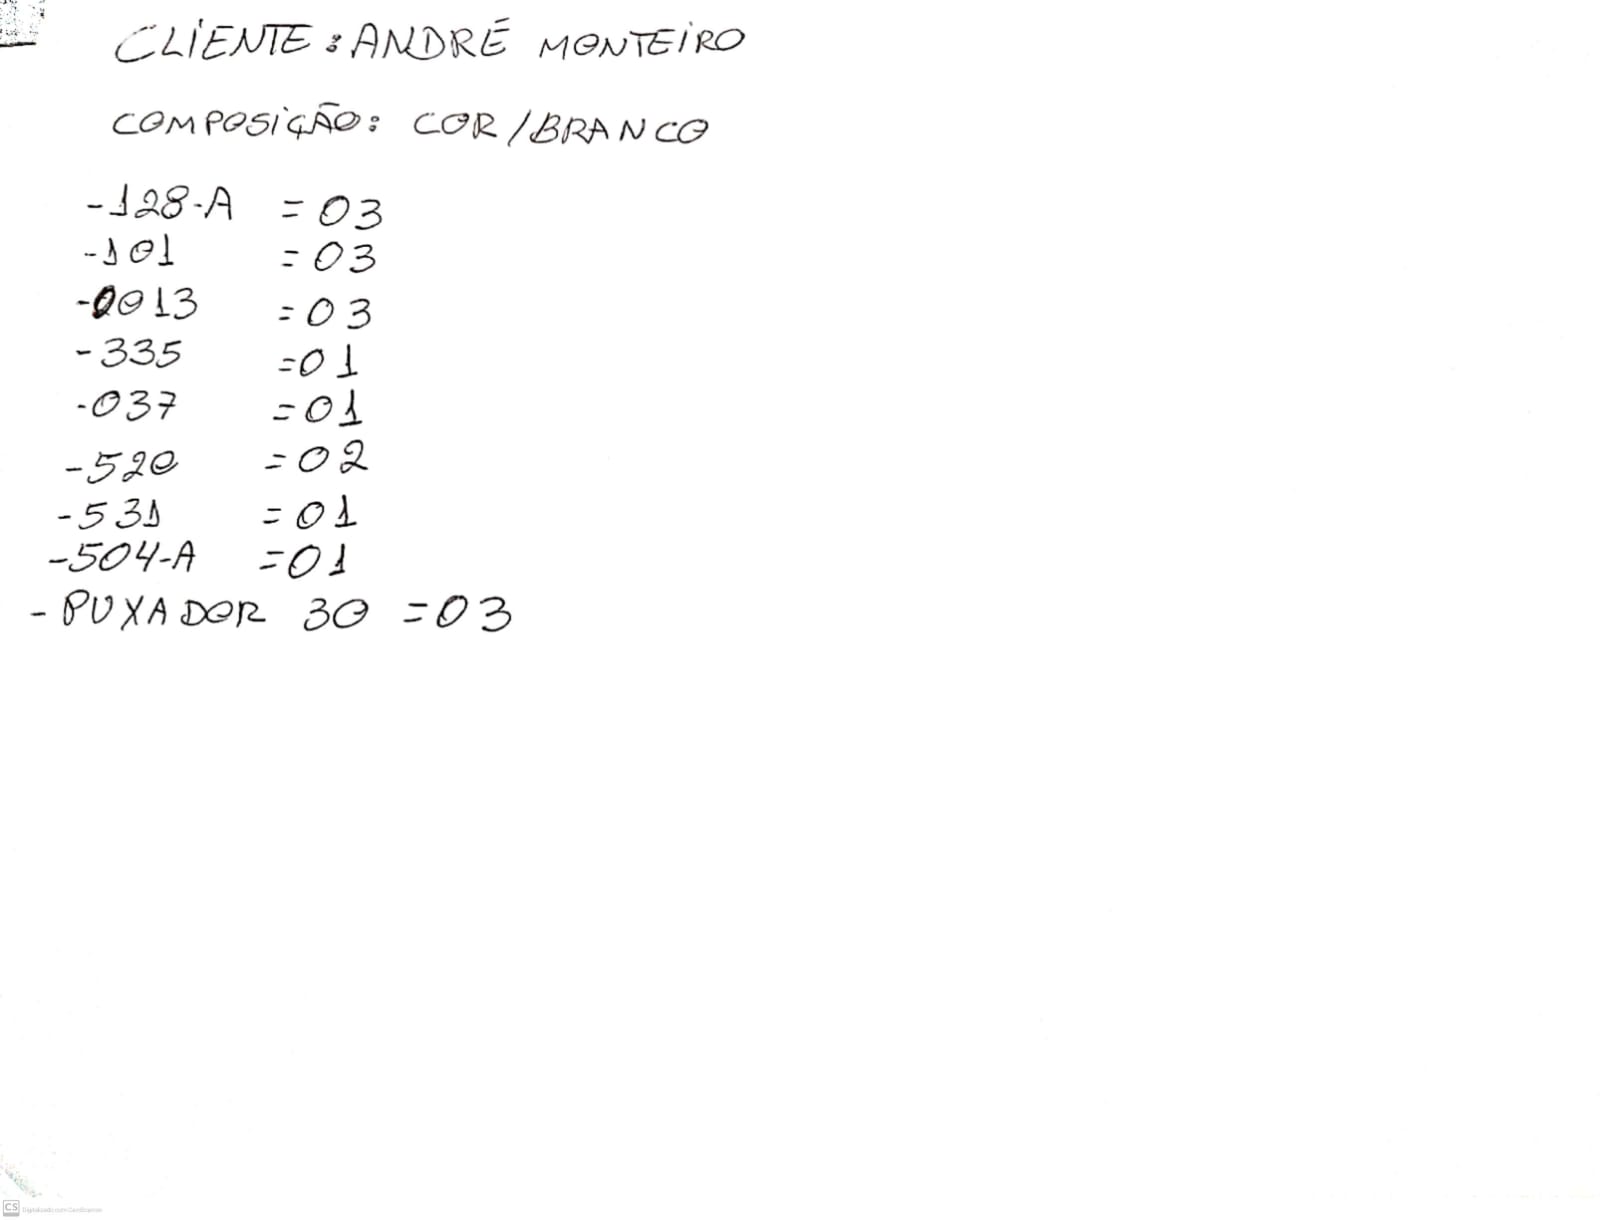 CLIENTE: ANDRÉ MONTEIRO
COMPOSIÇÃO: COR/BRANCO
-128-A = 03
-101 = 03
-0013 = 03
-335 = 01
-037 = 01
-520 = 02
-531 = 01
-504-A = 01
- PUXADOR 30 = 03
CS Digitalizado com CamScanner